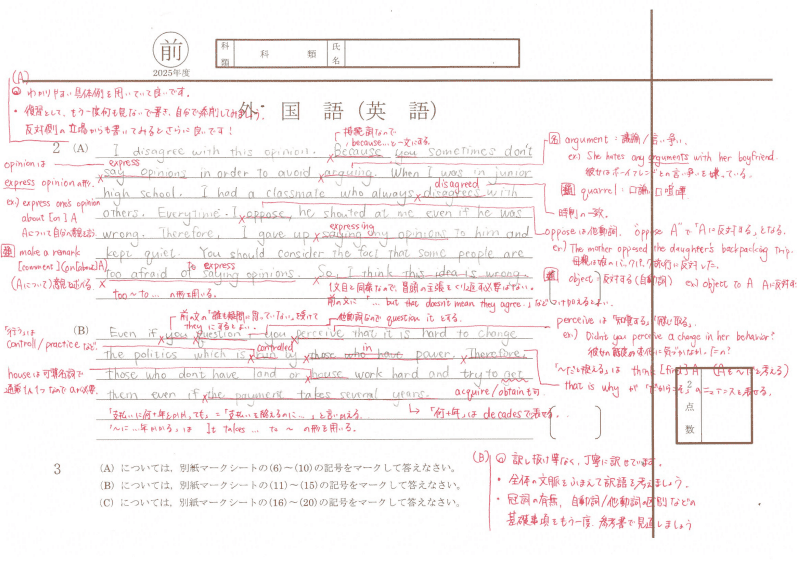 前
2025年度
科類
科類
氏名
外国語(英語)
(A)
わかりやすい具体例を用いていて良いです。
・復習として、もう一度何も見ないで書き、自分で添削してみましょう。
反対側の立場からも書いてみるとさらに良いです!
接続詞なので
because…と一文にする
2 (A) I disagree with this opinion. Because you sometimes don't
express
say opinions in order to avoid arguing. When I was in junior
disagreed
high school. I had a classmate who always disagrees with
others. Everytime I oppose, he shouted at me even if he was
expressing
wrong. Therefore, I gave up saying any opinions to him and
kept quiet. You should consider the fact that some people are
to express
too afraid of saying opinions. So I think this idea is wrong.
too~to… の形を用いる。
1文目と同様なので、冒頭の主張をくり返す必要はない。
前の文に「… but that doesn't mean they agree.」など
opinion は
express opinion の形。
ex) express one's opinion
about [on] A
Aについて自分の意見を
make a remark
[comment] (on [about] A)
(Aについて)意見を述べる
名 argument:議論/言い争い
ex) She hates any arguments with her boyfriend.
彼女はボーイフレンドとの言い争いを嫌っている。
類 quarrel:口論、口喧嘩
時制の一致。
oppose は他動詞。"oppose A"で「Aに反対する」となる。
ex) The mother opposed the daughter's backpacking trip.
object:反対する(自動詞) ex) object to A Aに反対する
(B)
前の文の
they にするとよい。
他動詞なので question it とする。
Even if you question you perceive that it is hard to change
controlled
in
the politics which is run by those who have power. Therefore,
those who don't have land or house work hard and try to get
acquire/obtain も可
them even if the payment takes several years.
「行う」は
control / practice など
house は可算名詞で
「支払いに何十年もかかれ、でも」=「支払いを終えるのに…」と言いかえる。
「何十年」は decades で表せる。
「~に…年かかる」は It takes … to ~ の形を用いる。
perceive は「知覚する」「感じ取る」。
ex) Didn't you perceive a change in her behavior?
that is why が「だからこそ」のニュアンスを表せる。
2 点数
3 (A) については,別紙マークシートの(6)~(10)の記号をマークして答えなさい。
(B) については,別紙マークシートの(11)~(15)の記号をマークして答えなさい。
(C) については,別紙マークシートの(16)~(20)の記号をマークして答えなさい。
(B) 訳し抜け等なく、丁寧に訳せています。
・全体の文脈をふまえて訳語を考えましょう。
・冠詞の有無、自動詞/他動詞の区別などの
基礎事項をもう一度、参考書で見直しましょう